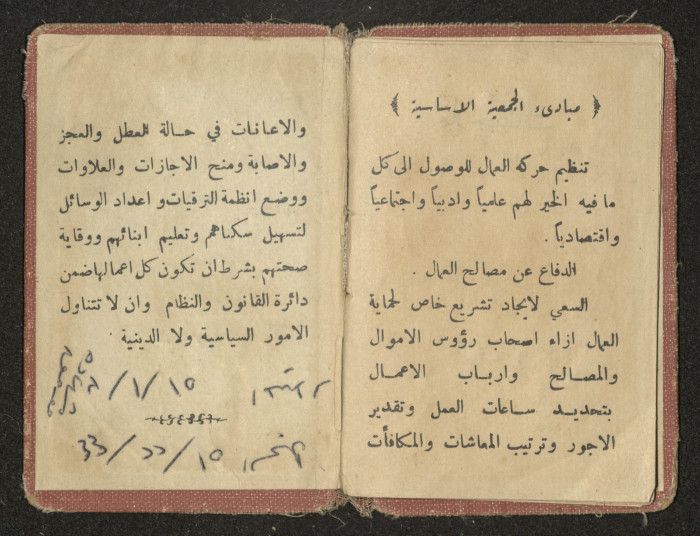 ﴿ مبادىء الجمعية الاساسية ﴾
تنظيم حركه العمال للوصول الى كل
ما فيه الخير لهم علمياً وادبياً واجتماعياً
واقتصادياً .
الدفاع عن مصالح العمال .
السعي لايجاد تشريع خاص لحماية
العمال ازاء اصحاب رؤوس الاموال
والمصالح وارباب الاعمال
بتحديد ساعات العمل وتقدير
الاجور وترتيب المعاشات والمكافأت
والاعانات في حالة العطل والعجز
والاصابة ومنح الاجازات والعلاوات
ووضع انظمة الترقيات و اعداد الوسائل
لتسهيل سكناهم وتعليم ابنائهم ووقاية
صحتهم بشرط ان تكون كل اعمالها ضمن
دائرة القانون والنظام وان لا تتناول
الامور السياسية ولا الدينية .